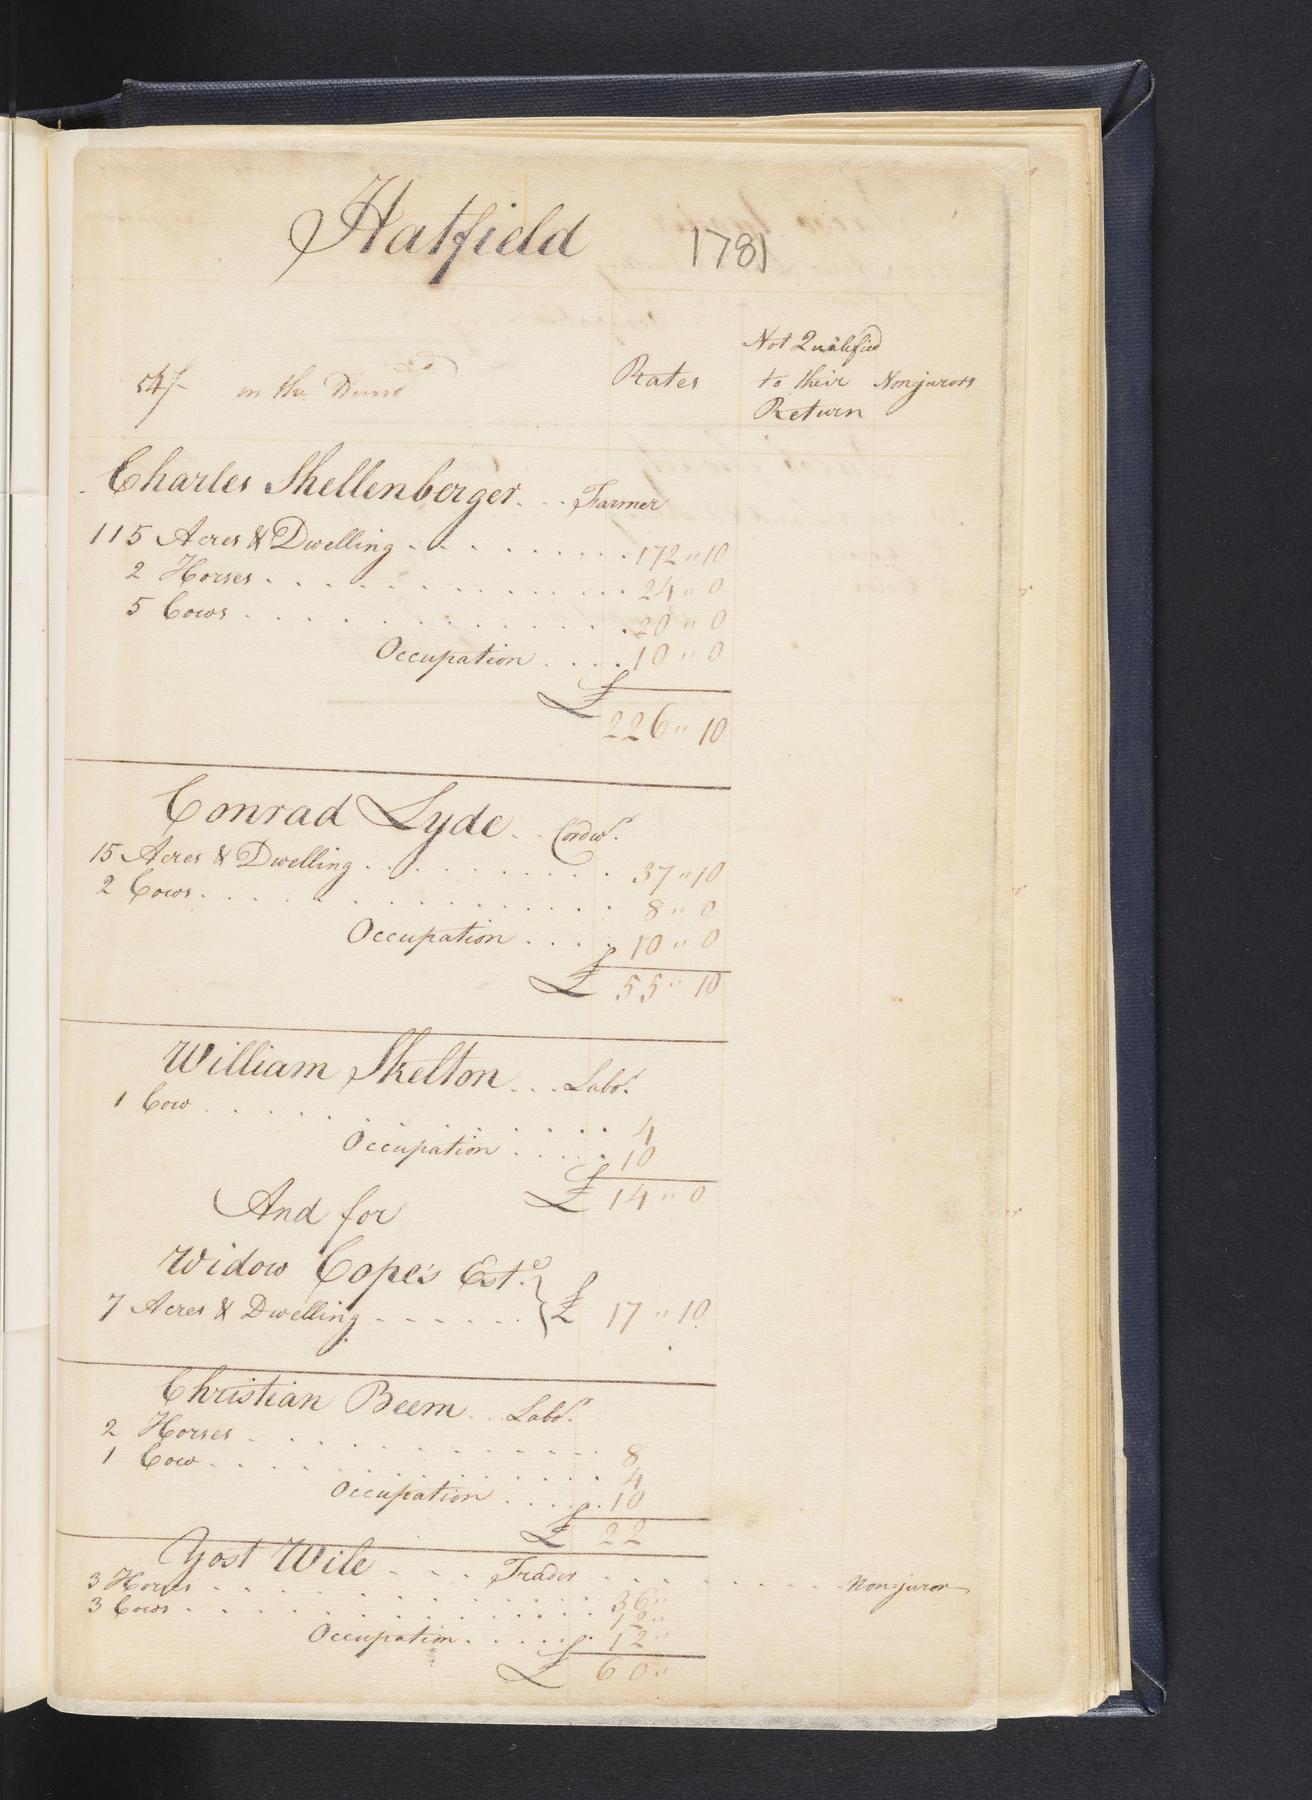 Hatfield 1781
Not Qualified
54/- on the Hund.d Rates to their Nonjurors
Return
Charles Shellenberger... Farmer
115 Acres & Dwelling......... 172 " 10
2 Horses............... 24 " 0
5 Cows............... 20 " 0
Occupation.... 10 " 0
£ 226 " 10
Conrad Lyde... Cordw.r
15 Acres & Dwelling......... 37 " 10
2 Cows............... 8 " 0
Occupation.... 10 " 0
£ 55 " 10
William Skelton... Labo.r
1 Cow............ 4
Occupation..... 10
£ 14 " 0
And for
Widow Cope's Est.e
7 Acres & Dwelling ------ } £ 17 " 10
Christian Beem... Labo.r
2 Horses............ 8
1 Cow............ 4
Occupation..... 10
£ 22
Yost Wile.... Trader........ Non-juror
3 Horses............ 36 "
3 Cows............ 12 "
Occupation...... 12 "
£ 60 "